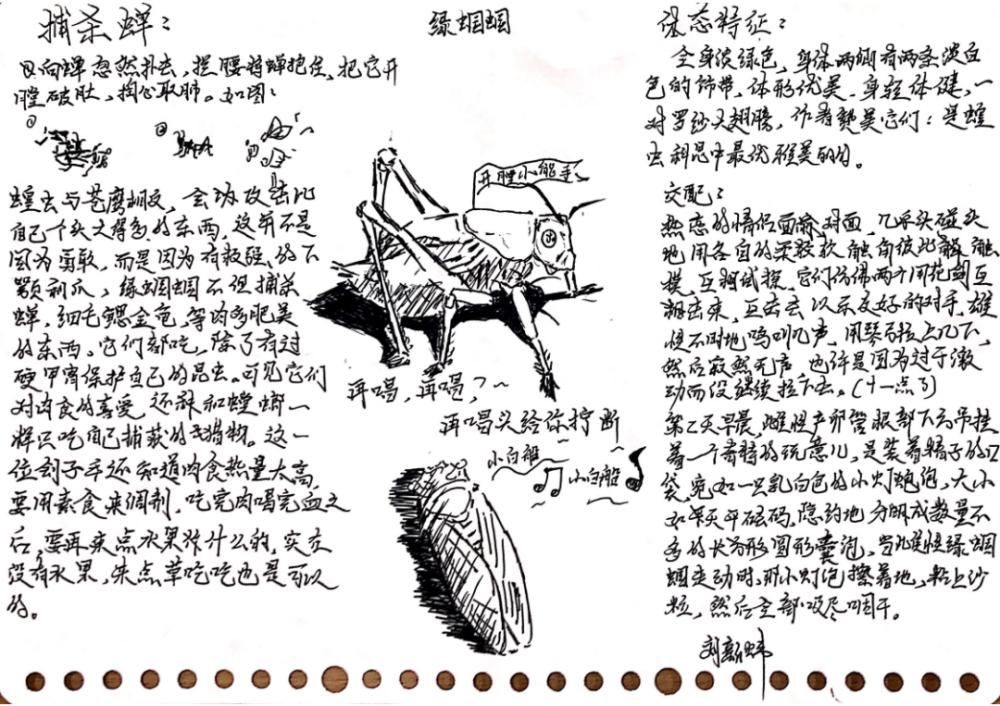 捕杀蝉:
只向蝉忽然扑去,捉腰将蝉抱住,把它开
膛破肚,掏心取肺。如图:
① ② ③
蝗虫与苍鹰
会攻击比
自己个头大得多的东西,这并不是
因为勇敢,而是因为有救强的下
颚利爪,绿蝈蝈不但捕杀
蝉,细毛鳃金龟,等肉多肥美
的东西,它们都吃,除了有过
硬甲胄保护自己的昆虫。可见它们
对肉食的喜爱,还都和螳螂一
样只吃自己捕获的猎物。这一
位刽子手还知道肉食热量太高,
要用素食来调剂,吃完肉喝完血之
后,要再来点水果浆什么的,实在
没有水果,来点草吃吃也是可以
的。
绿蝈蝈
开膛小能手
再喝,再喝?~
再喝头给你拧断
小白船
小白船
体态特征:
全身淡绿色,身体两侧有两条淡白
色的饰带,体形优美,身轻体健,一
对罗纱大翅膀,作者赞美它们:是蝗
虫科昆中最优雅美丽的。
交配:
热恋的情侣面对面,几乎头碰头
地用各自的柔软触角彼此触
摸,互相试探。它们仿佛两个用花剑互
相击来,互击去以示友好的对手,雄
性不时地鸣叫几声,用琴弓拉上几下,
然后寂然无声,也许是因为过于激
动而没继续拉下去。(十一点了)
第二天早晨,雌性产卵管根部下方吊挂
着一个奇特的玩意儿,是装着精子的口
袋,宛如一只乳白色的小灯泡,大小
如同天平砝码,隐约地分成数量不
多的长方形圆形囊泡,当此雌性绿蝈
蝈走动时,那小灯泡擦着地,粘上沙
粒,然后全部吸尽咽干。
刘新